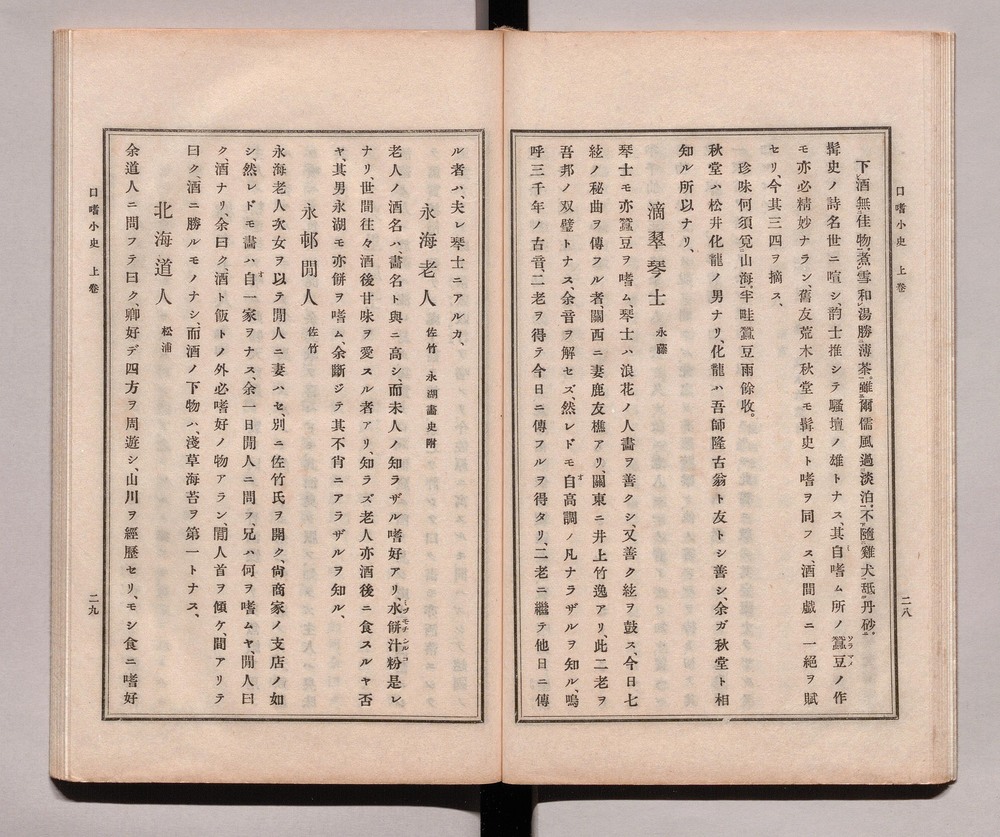 口嗜小史 上卷
下酒無佳物。煮雪和湯勝薄茶。雖爾儒風過淡泊。不隨雞犬舐丹砂。
髯史ノ詩名世ニ喧シ、韵士推シテ騷壇ノ雄トナス、其自嗜ム所ノ蠶豆ノ作
モ亦必精妙ナラン、舊友荒木秋堂モ髯史ト嗜ヲ同フス、酒間戯ニ一絕ヲ賦
セリ、今其三四ヲ摘ス、
珍味何須覓山海。半畦蠶豆雨餘收。
秋堂ハ松井化龍ノ男ナリ、化龍ハ吾師隆古翁ト友トシ善シ、余ガ秋堂ト相
知ル所以ナリ、
滴翠琴士 永藤
琴士モ亦蠶豆ヲ嗜ム、琴士ハ浪花ノ人畵ヲ善クシ、又善ク絃ヲ鼓ス、今日七
絃ノ秘曲ヲ傳フル者關西ニ妻鹿友樵アリ、關東ニ井上竹逸アリ、此二老ヲ
吾邦ノ双璧トナス、余音ヲ解セズ、然レドモ自高調ノ凡ナラザルヲ知ル、嗚
呼三千年ノ古音、二老ヲ得テ今日ニ傳フルヲ得タリ、二老ニ繼テ他日ニ傳
二八
口嗜小史 上卷
ル者ハ、夫レ琴士ニアルカ、
永海老人 佐竹 永湖畵史附
老人ノ酒名ハ畵名ト與ニ高シ、而未人ノ知ラザル嗜好アリ、氷餠汁粉是レ
ナリ、世間往々酒後甘味ヲ愛スル者アリ、知ラズ老人亦酒後ニ食スルヤ否
ヤ、其男永湖モ亦餠ヲ嗜ム、余斷ジテ其不肖ニアラザルヲ知ル、
永邨閒人 佐竹
永海老人次女ヲ以テ閒人ニ妻ハセ、別ニ佐竹氏ヲ開ク、尙商家ノ支店ノ如
シ、然レドモ畵ハ自一家ヲナス、余一日閒人ニ問フ、兄ハ何ヲ嗜ムヤ、閒人曰
ク、酒ナリ、余曰ク、酒ト飯トノ外必嗜好ノ物アラン、閒人首ヲ傾ケ、間アリテ
曰ク、酒ニ勝ルモノナシ、而酒ノ下物ハ、淺草海苔ヲ第一トナス、
北海道人 松浦
余道人ニ問フテ曰ク、卿好デ四方ヲ周遊シ、山川ヲ經歷セリ、モシ食ニ嗜好
二九